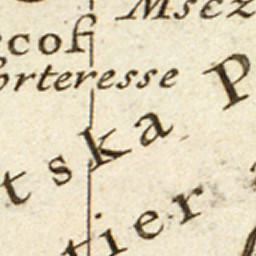 Msez
ecof
orteresse
tska P
tier